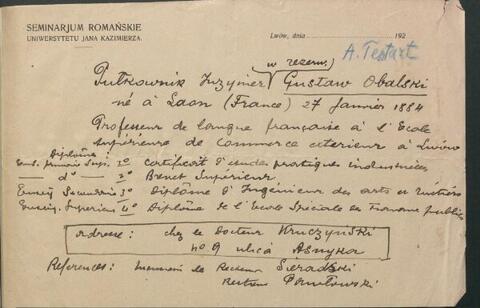 SEMINARJUM ROMAŃSKIE
UNIWERSYTETU JANA KAZIMIERZA.
Lwów, dnia 192
A. Testart
w rezerw.)
Pułkownik Inzynier Gustaw Obalski
né à Laon (France) 27 janvier 1884
Professeur de langue française à l'Ecole
Supérieure de Commerce exterieur à Lwów
Diplômes
Ens. Primaire Sup. 1º certificat d'etudes pratiques industrielles
— dº — 2º Brevet Supérieur
Enseig Secondaire 3º Diplôme d'Ingénieur des arts et métiers
Enseig. Superieur 4º Diplôme de l'Ecole Spéciale des Travaux publics
adresse : chez le Docteur Kruczyński
Nº 9 ulica Asnyka
References : Monsieur le Recteur Sieradzki
Pawłowski